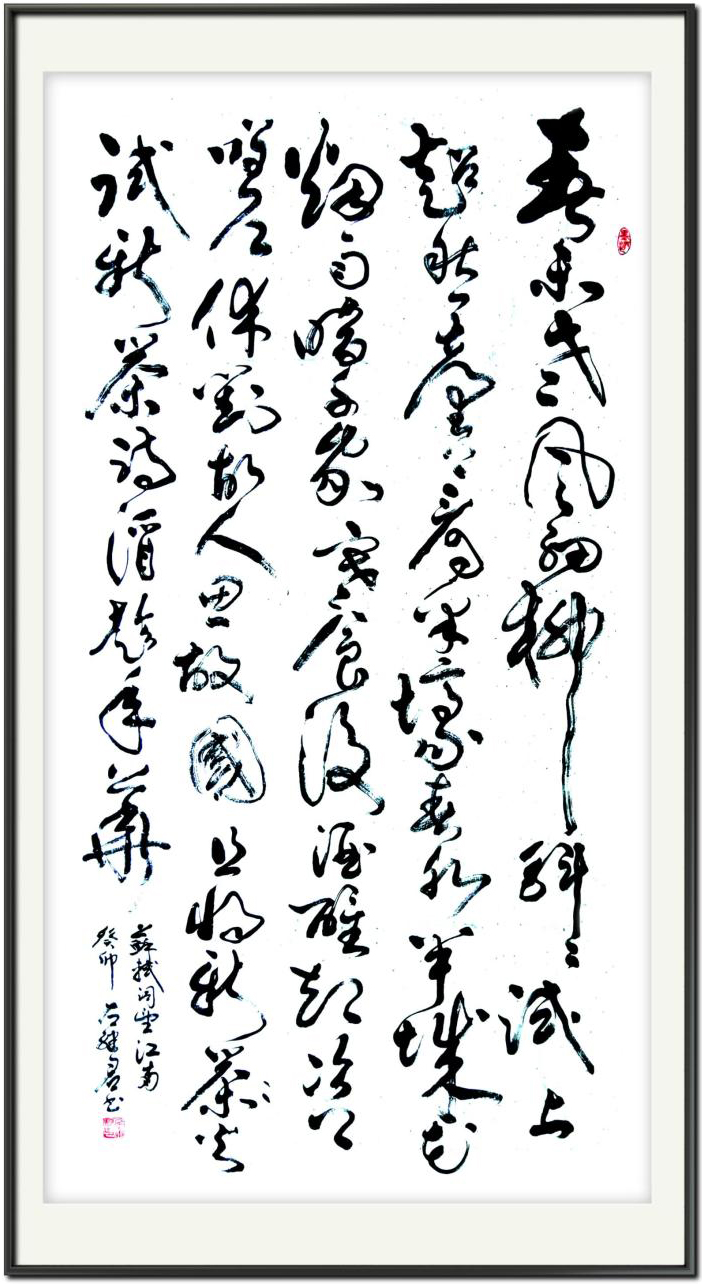 春未老〻風細柳斜〻試上
超然臺上看半壕春水半城花
煙雨暗千家寒食後酒醒却咨
嗟休對故人思故國且將新茶〻火
試新茶詩酒趁年華
蘇軾詞望江南
癸卯